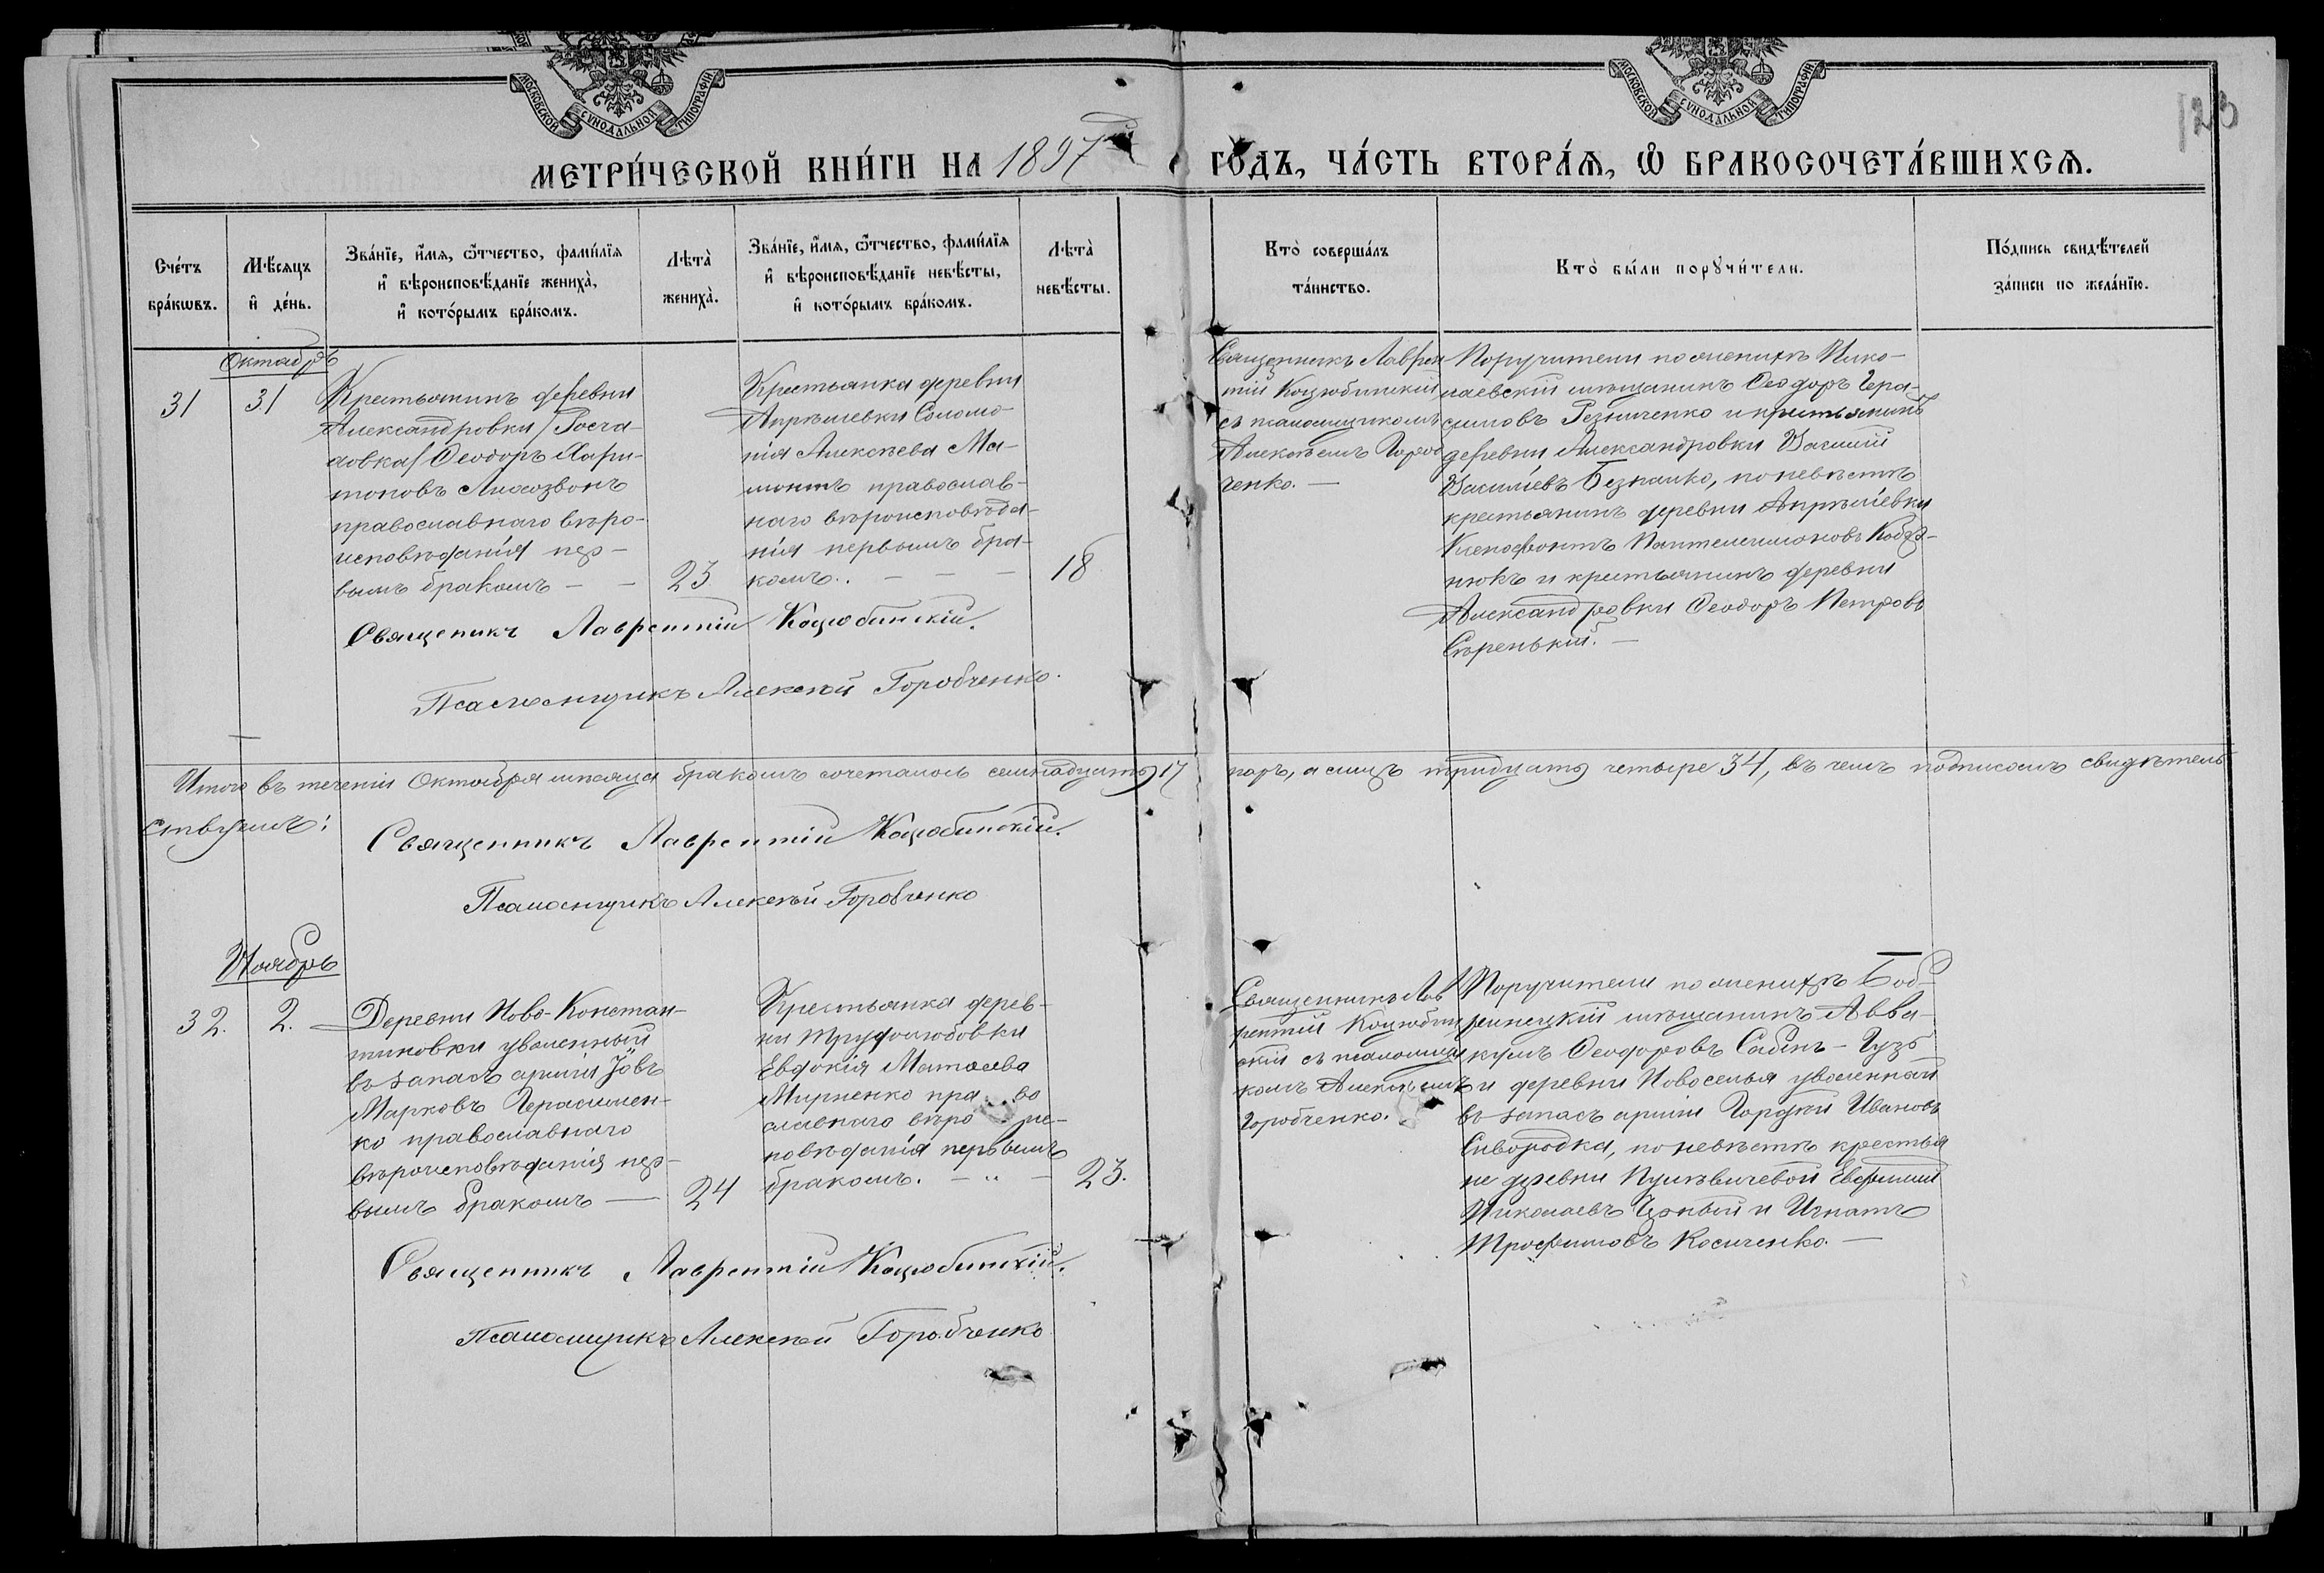 МОСКОВСКОЙ СУНОДАЛЬНОЙ ТИПОГРАФІИ
МОСКОВСКОЙ СУНОДАЛЬНОЙ ТИПОГРАФІИ
123
МЕТРИ́ЧЕСКОЙ КНИ́ГИ НА 1897
ГО́ДЪ, ЧА́СТЬ ВТОРА́Я, Ѡ БРАКОСОЧЕТА́ВШИХСЯ.
Сче́тъ
бра́кѡвъ.
Мѣ́сяцъ
и҆ де́нь.
Зва́нїе, и҆́мя, ѻ҆́тчество, фами́лїя
и҆ вѣроисповѣ́данїе жениха̀,
и҆ кото́рымъ бра́комъ.
Лѣта̀
жениха̀.
Зва́нїе, и҆́мя, ѻ҆́тчество, фами́лїя
и҆ вѣроисповѣ́данїе невѣ́сты,
и҆ кото́рымъ бра́комъ.
Лѣта̀
невѣ́сты.
Кто̀ соверша́лъ
та́инство.
Кто̀ бы́ли порꙋчи́тели.
По́дпись свидѣ́телей
за́писи по жела́нїю.
Октябрь
31
31
Крестьянинъ деревни
Александровки /Росча-
ловка/ Ѳеодоръ Хари-
тоновъ
православнаго вѣро-
исповѣданія пер-
вымъ бракомъ — —
23
Крестьянка деревни
Апрѣлевки Соломо-
нія Алексѣева Ма-
православ-
наго вѣроисповѣда-
нія первымъ бра-
комъ.. — — —
18
Священникъ Лаврен
тій Коцюбинскій
съ псаломщикомъ
Алексѣемъ Гороб
ченко. —
Поручители по женихѣ Нико-
лаевскій мѣщанинъ Ѳеодоръ Гера-
симовъ Резниченко и крестьянинъ
деревни Александровки Василій
Васильевъ Безпалко, по невѣстѣ
крестьянинъ деревни Апрѣлевки
Ксенофонтъ Пантелеимоновъ Кобз-
нюкъ и крестьянинъ деревни
Александровки Ѳеодоръ Петровъ
Сѣренькій. —
Священикъ Лаврентій Коцюбинскій.
Псаломщикъ Алексѣй Горобченко.
Итого въ теченіи Октября мѣсяца бракомъ сочеталось семнадцать 17 паръ, а лицъ тридцать четыре 34, въ чемъ подписомъ свидѣтель
ствуемъ:
Священникъ Лаврентій Коцюбинскій.
Псаломщикъ Алексѣй Горобченко
Ноябрь
32.
2.
Деревни Ново-Констан-
тиновки уволенный
въ запасъ арміи Іовъ
Марковъ Герасимен-
ко православнаго
вѣроисповѣданія пер-
вымъ бракомъ —
24
Крестьянка дерев-
ни Трудолюбовки
Евдокія Матѳеева
Мирненко пра во
славнаго вѣро ис-
повѣданія первымъ
бракомъ. — „ —
23.
Священникъ Лав
рентій Коцюбин
скій съ псаломщи
комъ Алексѣемъ
Горобченко.
Поручители по женихѣ Боб-
ринецкій мѣщанинъ Авва-
кумъ Ѳеодоровъ Сабинъ-Гузъ
и деревни Новоселья уволенный
въ запасъ арміи Гордѣй Ивановъ
Сивородка, по невѣстѣ крестья
не деревни Евфимій
Николаевъ и Игнатъ
Трофимовъ Косиченко. —
Священникъ Лаврентій Коцюбинскій.
Псаломщикъ Алексѣй Горобченко